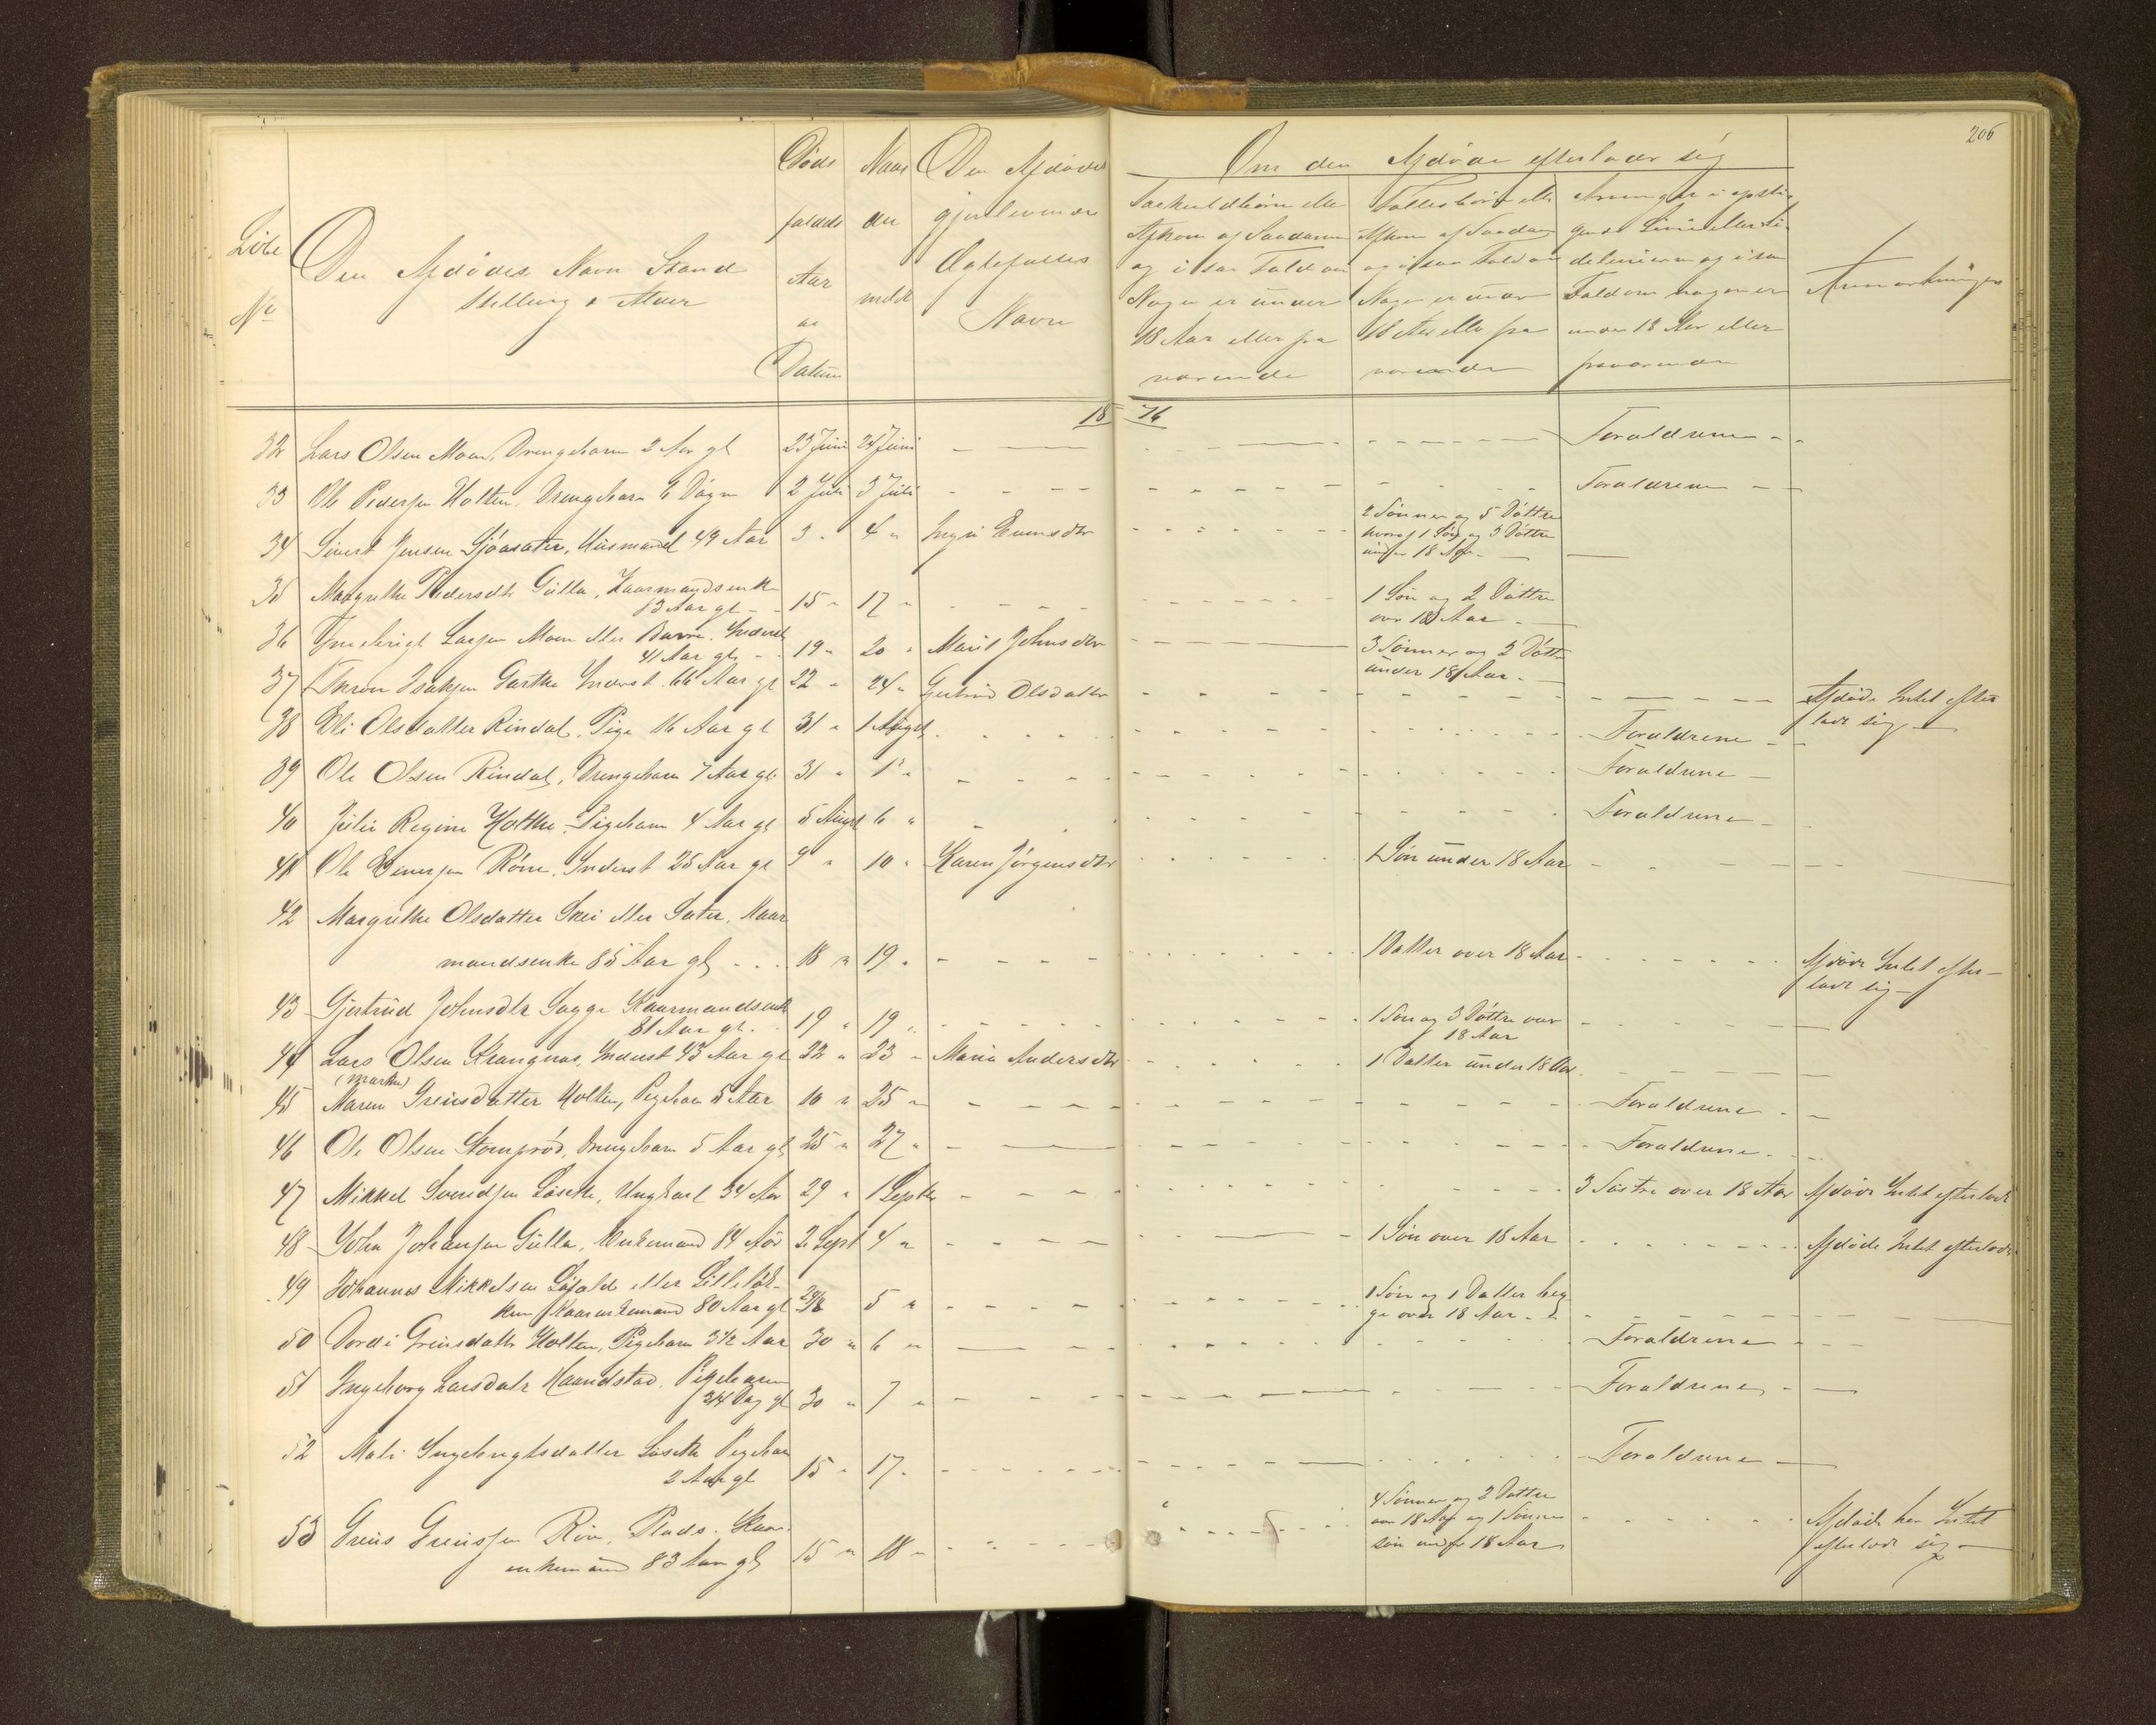 206
Löbe
No
Den Afdødes Navn Stand
Stilling & Alder
Døds
faldets
Aar
og
Datum
Naar
an
meldt
Den Afdødes
gjenlevende
Ægtefælles
Navn
Om den Afdøde efterlader sig
Særkuldbörn eller
Afkom af Saadanne
og i saa Fald om
Nogen er under
18 Aar eller fra
værende
Fællesbörn eller
Afkom af Saadanne
og i saa Fald om
Nogen er under
18 Aar eller fra
værende
Arvinger i opsti-
gende Linie eller Si-
delinierne og i saa
Fald om nogen er
under 18 Aar eller
fraværende
Anmærkninger
1876
32 Lars Olsen Moen, Drengebarn 2 Aar gl 23 Juni 24 Juni Forældrene
33 Ole Pedersen Holten, Drengebarn 6 Døgn 2 Juli 3 Juli Forældrene
34 Sivert Jensen Sjöasæter, Husmand 49 Aar 3 " 4 " Ingri Evensdtr 2 Sönner og 5 Döttre
hvoraf 1 Sön og 3 Döttre
under 18 Aar
35 Margrethe Pedersdtr Gulla, Kaarmandsenke
Aar gl 15 " 17 " 1 Sön og 2 Döttre
over 18 Aar
36 Ingebrigt Larsen Moen eller Inderst
41 Aar gl 19 " 20 " Marit Johnsdtr 3 Sönner og 2 Döttre
under 18 Aar
37 Isaksen Garthe Inderst 66 Aar gl 22 " 24 " Gjertrud Olsdatter Afdøde Intet efter
lade sig
38 Eli Olsdatter Rindal, Pige 16 Aar gl 31 " 1 Augst Forældrene
39 Ole Olsen Rindal, Drengebarn 7 Aar gl 31 " 1 " Forældrene
40 Julie Regine Holthe, Pigebarn 4 Aar gl 5 Augst 6 " Forældrene
41 Ole Röen, Inderst 25 Aar gl 9 " 10 " Karen Jörgensdtr 1 Sön under 18 Aar
42 Margrethe Olsdatter Skei eller Sæter, Kaar
mandsenke 85 Aar gl 18 " 19 " 1 Datter over 18 Aar Afdøde Intet efter-
lade sig
43 Gjertrud Johnsdtr Bagge Kaarmandsenke
81 Aar gl 19 " 19 " 1 Sön og 3 Döttre over
18 Aar
44 Lars Olsen Krangnæs, Inderst 43 Aar gl 22 " 23 " Maria Andersdtr 1 Datter under 18 Aar
(Marthe)
45 Maren Greiesdatter Holten, Pigebarn 5 Aar 10 " 25 " Forældrene
46 Ole Olsen Stomprød, Drengebarn 5 Aar gl 25 " 27 " Forældrene
47 Mikkel Sivertsen Löseth, Ungkarl 34 Aar 29 " 1 Septbr 3 Söstre over 18 Aar Afdøde Intet efterlade
48 John Johansen Gulla, Enkemand 84 Aar 2 Sept 4 " 1 Sön over 18 Aar Afdøde Intet efterlade
49 Johannes Mikkelsen Löfald eller Lillelök-
ken Kaarenkemand 80 Aar gl 29/8 5 " 1 Sön og 1 Datter beg
ge over 18 Aar
50 Dordi Greiesdatter Holten, Pigebarn 3 1/2 Aar 30 " 6 " Forældrene
51 Ingeborg Larsdatr Haandstad, Pigebarn
3/4 Dag gl 30 " 7 " Forældrene
52 Mali Ingebrigtsdatter Löseth Pigebarn
2 Aar gl 15 " 17 " Forældrene
53 Greis Greisen Röen, Plads Kaar
enkemand 83 Aar gl 15 " 18 " 4 Sönner og 2 Döttre
over 18 Aar og 1 Sönne
sön under 18 Aar Afdøde har Intet
efterladt sig